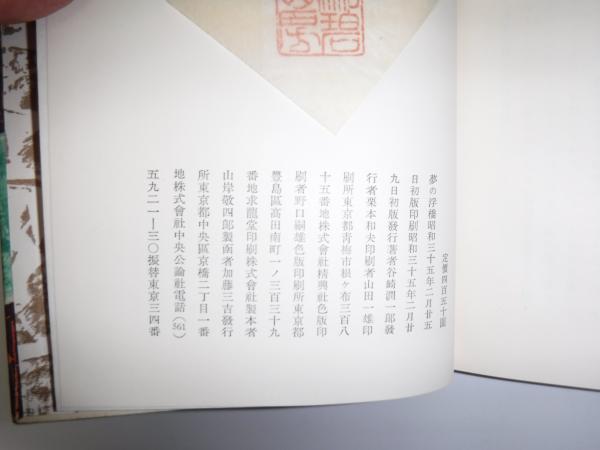 碧
定價四百五十圓
夢の浮橋昭和三十五年二月廿五
日初版印刷昭和三十五年二月廿
九日初版發行著者谷崎潤一郎發
行者栗本和夫印刷者山田一雄印
刷所東京都靑梅市根ヶ布三百八
十五番地株式會社精興社色版印
刷者野口嗣雄色版印刷所東京都
豐島區高田南町一ノ三百三十九
番地求龍堂印刷株式會社製本者
山岸敬四郎製函者加藤三吉發行
所東京都中央區京橋二丁目一番
地株式會社中央公論社電話(561)
五九二一—三〇振替東京三四番